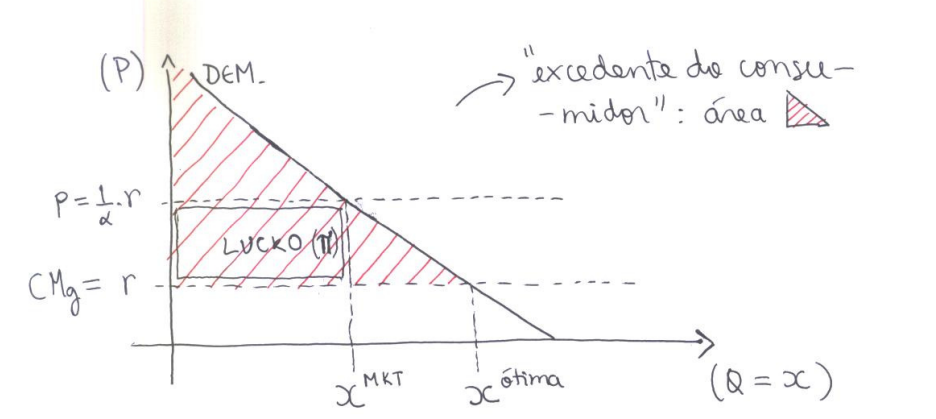 (P)
DEM.
"excedente do consu-
-midor": área
P = 1/α . r
LUCRO (π)
CMg = r
x^MKT
x^ótima
(Q = x)